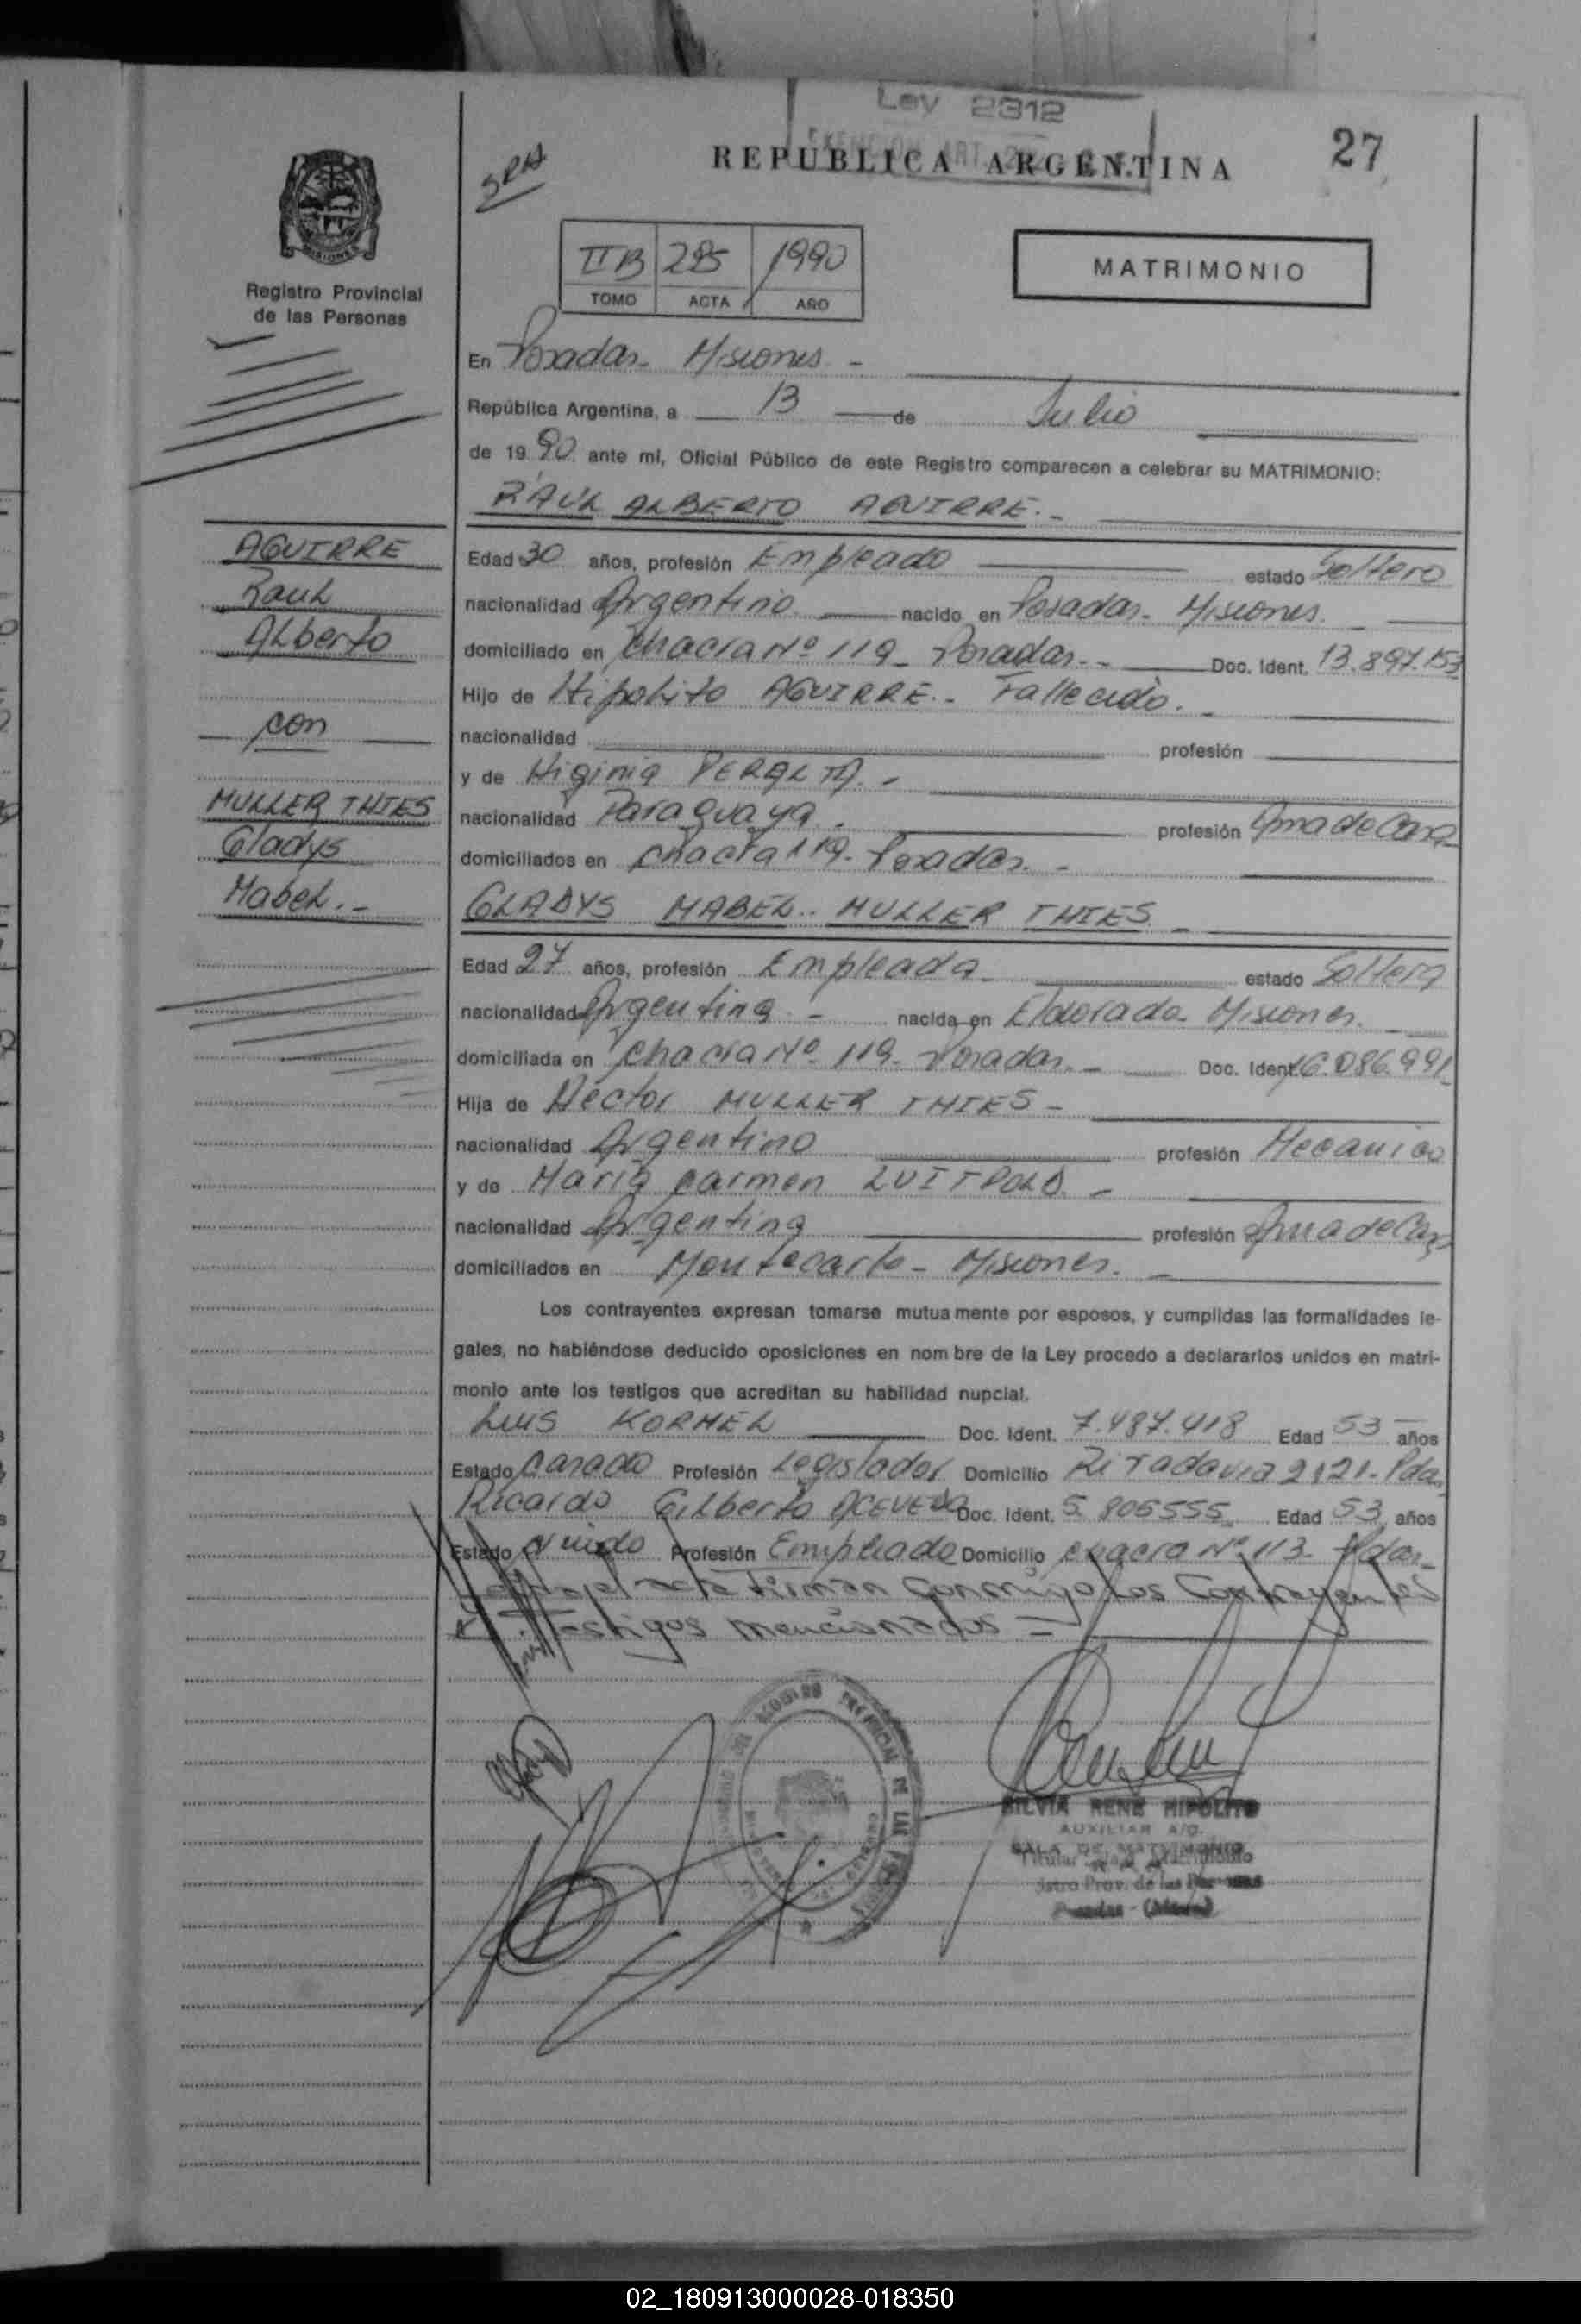 Ley 2312
27
REPUBLICA ARGENTINA
SRH
IIB 285 1990
TOMO ACTA AÑO
MATRIMONIO
MISIONES
Registro Provincial
de las Personas
En Posadas - Misiones -
República Argentina, a 13 de Julio
de 1990 ante mi, Oficial Público de este Registro comparecen a celebrar su MATRIMONIO:
RAUL ALBERTO AGUIRRE.-
AGUIRRE
Raul
Alberto
con
MULLER THIES
Gladys
Mabel.-
Edad 30 años, profesión Empleado estado Soltero
nacionalidad Argentino nacido en Posadas - Misiones.
domiciliado en Chacra Nº 119 - Posadas.- Doc. Ident. 13.897.153
Hijo de Hipolito AGUIRRE.- Fallecido.
nacionalidad profesión
y de Higinia PERALTA.-
nacionalidad Paraguaya. profesión Ama de Casa
domiciliados en chacra 119 - Posadas. -
GLADYS MABEL.. MULLER THIES. -
Edad 27 años, profesión Empleada estado Soltera
nacionalidad Argentina - nacida en Eldorado - Misiones.
domiciliada en Chacra Nº 119 - Posadas. - Doc. Ident. 16.086.991
Hija de Hector MULLER THIES -
nacionalidad Argentino profesión Mecanico
y de Maria Carmen LUITPOLD. -
nacionalidad Argentina profesión Ama de Casa
domiciliados en Montecarlo - Misiones. -
Los contrayentes expresan tomarse mutuamente por esposos, y cumplidas las formalidades le-
gales, no habiéndose deducido oposiciones en nombre de la Ley procedo a declararlos unidos en matri-
monio ante los testigos que acreditan su habilidad nupcial.
Luis KORMEL Doc. Ident. 7.487.418 Edad 53 años
Estado Casado Profesión Legislador Domicilio Rivadavia 2121 - Pdas
Ricardo Gilberto ACEVEDO Doc. Ident. 5.805555 Edad 53 años
Estado Viudo Profesión Empleado Domicilio chacra Nº 113 - Pdas -
acta Firman Conmigo los Contrayentes
y Testigos mencionados -
SILVIA RENE HIPOLITO
AUXILIAR A/C.
SALA DE MATRIMONIO
Prov. de las Personas
Posadas - (Misiones)
02_180913000028-018350